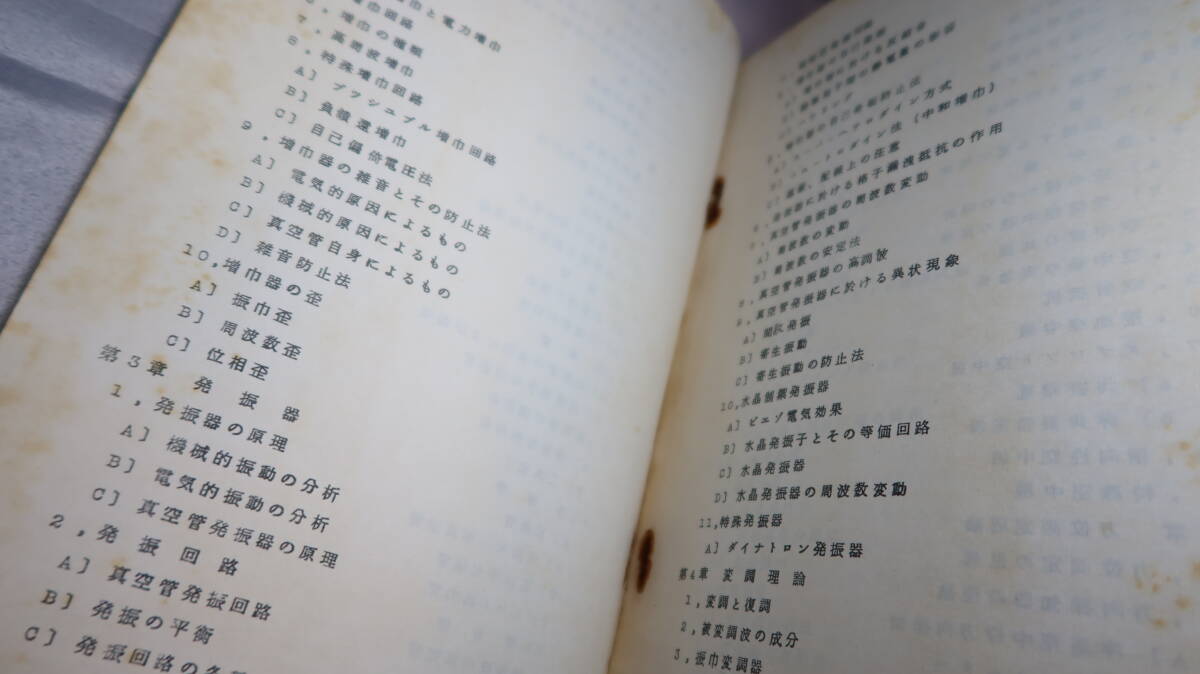 巾と電力増巾
増巾回路
6,増巾の種類
7,高周波増巾
8,特殊増巾回路
A] プッシュプル増巾回路
B] 負饋還増巾
C] 自己偏倚電圧法
9,増巾器の雑音とその防止法
A] 電気的原因によるもの
B] 機械的原因によるもの
C] 真空管自身によるもの
D] 雑音防止法
10,増巾器の歪
A] 振巾歪
B] 周波数歪
C] 位相歪
第3章 発振器
1,発振器の原理
A] 機械的振動の分析
B] 電気的振動の分析
C] 真空管発振器の原理
2,発振回路
A] 真空管発振回路
B] 発振の平衡
C] 発振回路の各
ダイン方式
ダイン法(中和増巾)
配線上の注意
発振器に於ける格子漏洩抵抗の作用
真空管発振器の周波数変動
A] 周波数の変動
B] 周波数の安定法
8,真空管発振器の高調波
9,真空管発振器に於ける異状現象
A] 間歇発振
B] 寄生振動
C] 寄生振動の防止法
10,水晶制禦発振器
A] ピエゾ電気効果
B] 水晶発振子とその等価回路
C] 水晶発振器
D] 水晶発振器の周波数変動
11,特殊発振器
A] ダイナトロン発振器
第4章 変調理論
1,変調と復調
2,被変調波の成分
3,振巾変調器